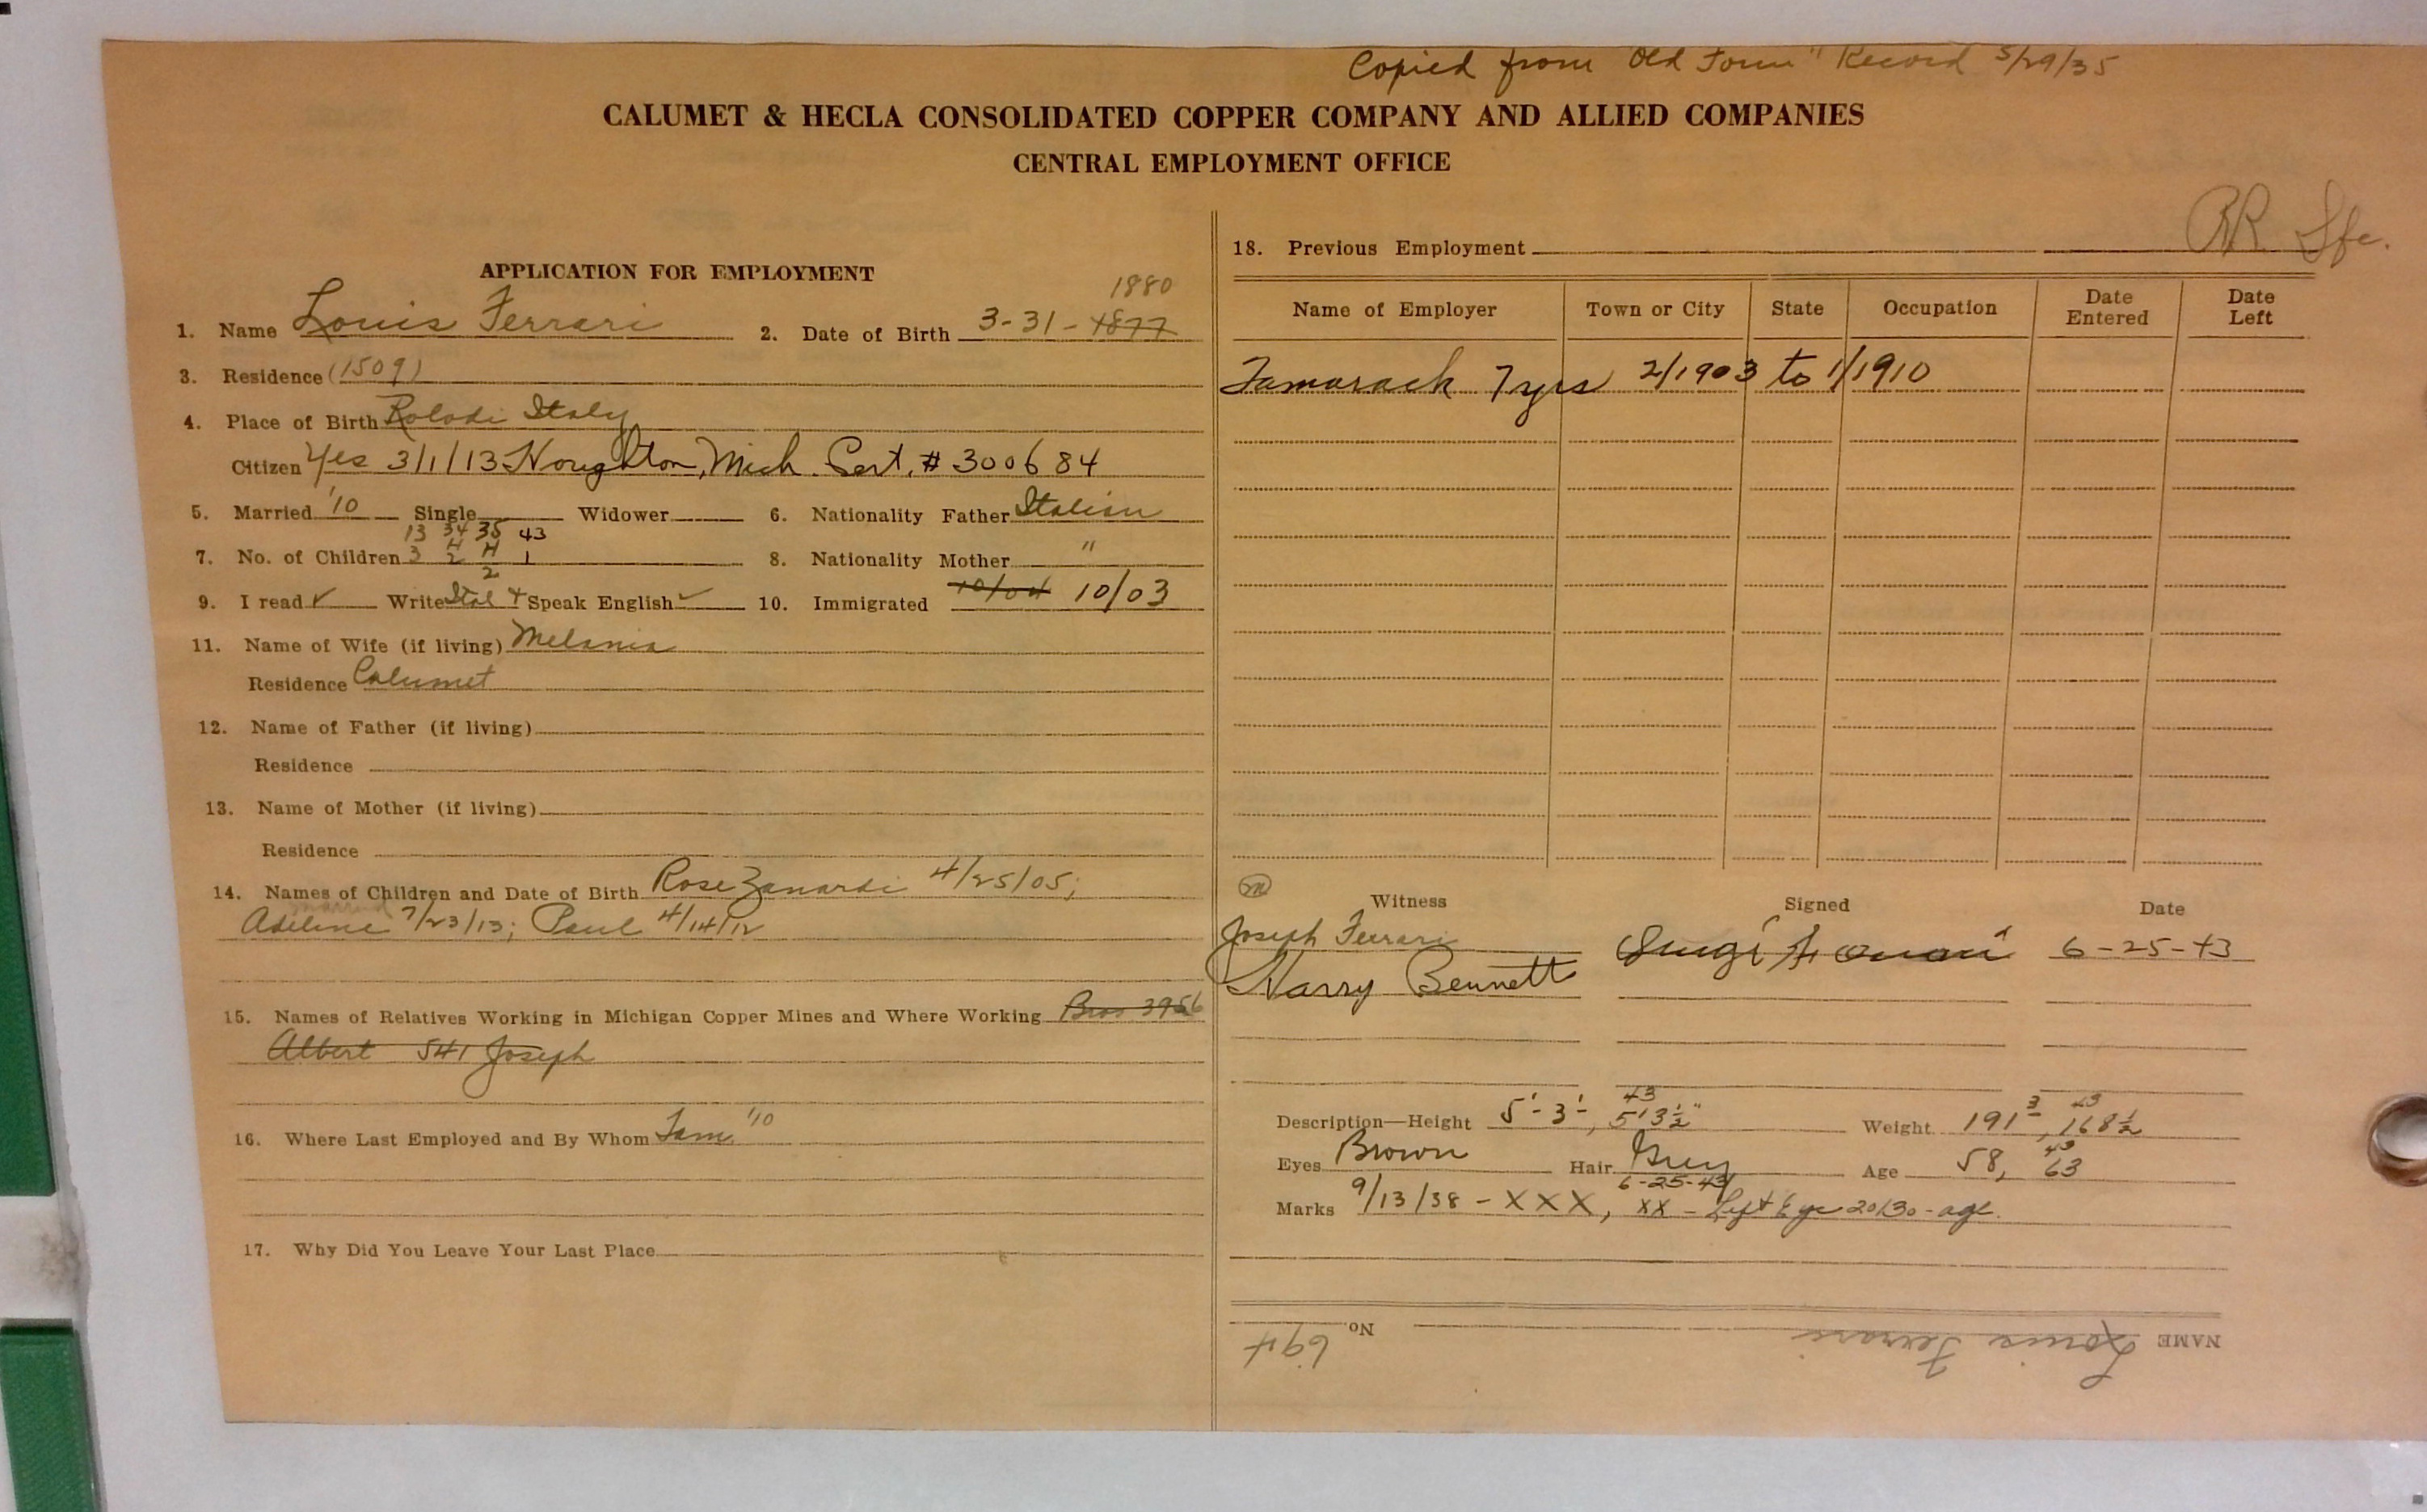 Copied from "Old Form" Record 5/29/35
CALUMET & HECLA CONSOLIDATED COPPER COMPANY AND ALLIED COMPANIES
CENTRAL EMPLOYMENT OFFICE
APPLICATION FOR EMPLOYMENT
1880
1. Name Louis Ferrari 2. Date of Birth 3-31-1877
3. Residence (1509)
4. Place of Birth Italy
Citizen Yes 3/1/13 Houghton, Mich. Cert. # 300684
5. Married '10 Single Widower 6. Nationality Father Italian
13 34 35 43
7. No. of Children 3 2 H 1 8. Nationality Mother "
H 2
9. I read ✓ Write Ital + Speak English ✓ 10. Immigrated 10/04 10/03
11. Name of Wife (if living) Melania
Residence Calumet
12. Name of Father (if living)
Residence
13. Name of Mother (if living)
Residence
14. Names of Children and Date of Birth Rose Zanardi 4/25/05;
married
Adeline 7/23/13; Paul 4/14/12
15. Names of Relatives Working in Michigan Copper Mines and Where Working Bros 3956
Albert 541 Joseph
16. Where Last Employed and By Whom Tam '10
17. Why Did You Leave Your Last Place
RR
18. Previous Employment
Name of Employer Town or City State Occupation Date Entered Date Left
Tamarack 7 yrs 2/1903 to 1/1910
m
Witness Signed Date
Joseph Ferrari Luigi Ferrari 6-25-43
Harry Bennett
43 43
Description—Height 5'-3", 5'3½" Weight 191 3, 168½
43
Eyes Brown Hair Grey Age 58, 63
6-25-43
Marks 9/13/38 - XXX, XX - Left Eye 20/30 - age.
NAME Louis Ferrari No. 694